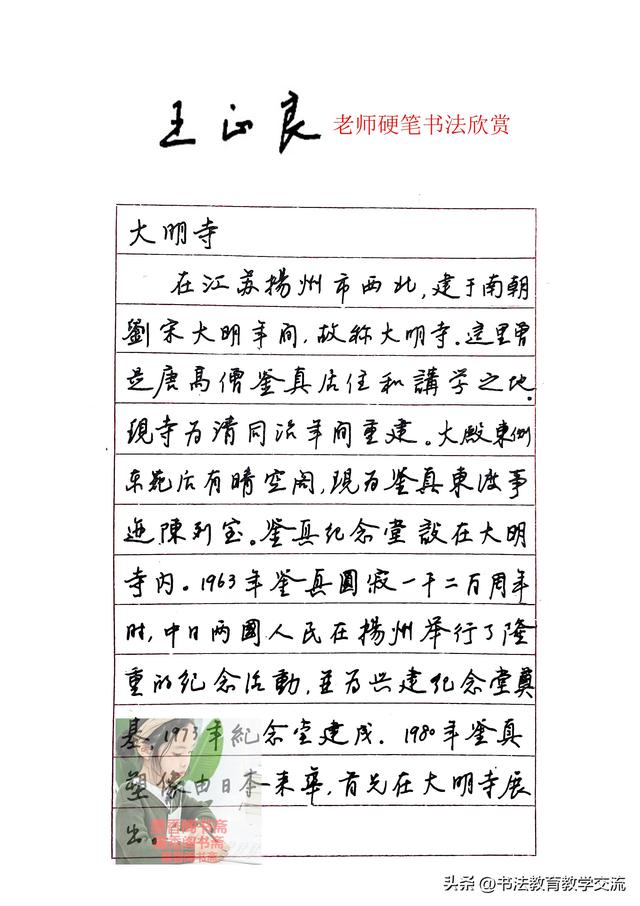 王正良老师硬笔书法欣赏
大明寺
在江苏揚州市西北,建于南朝
劉宋大明年间,故称大明寺.這里曾
是唐高僧鉴真居住和講学之地.
現寺为清同治年间重建。大殿東側
东苑后有晴空阁,現为鉴真東渡事
迹陳列室。鉴真纪念堂設在大明
寺内。1963年鉴真圓寂一千二百周年
时,中日两國人民在揚州举行了隆
重的纪念活動,並为兴建纪念堂奠
基.1973年紀念堂建成.1980年鉴真
塑像由日本来華,首先在大明寺展
出。
头条 @书法教育教学交流